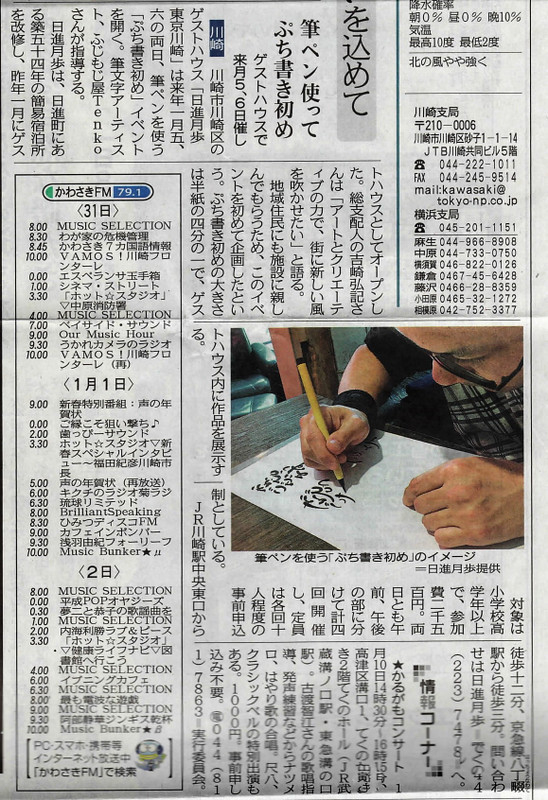 降水確率
朝0% 昼0% 晩10%
気温
最高10度 最低2度
北の風やや強く
川崎支局
〒210-0006
川崎市川崎区砂子1-1-14
JTB川崎共同ビル5階
☎ 044-222-1011
FAX 044-245-9514
mail:kawasaki@
tokyo-np.co.jp
横浜支局
☎ 045-201-1151
麻生 044-966-8908
中原 044-733-0750
横須賀 046-822-0126
鎌倉 0467-45-6428
藤沢 0466-28-8359
小田原 0465-32-1272
相模原 042-752-3377
を込めて
筆ペン使って
ぷち書き初め
ゲストハウスで
来月5、6日催し
川崎 川崎市川崎区の
ゲストハウス「日進月歩
東京川崎」は来年一月五、
六の両日、筆ペンを使う
「ぷち書き初め」イベント
を開く。筆文字アーティス
ト、ふじもじ屋Tenko
さんが指導する。
日進月歩は、日進町にあ
る築五十四年の簡易宿泊所
を改修し、昨年一月にゲス
トハウスとしてオープンし
た。総支配人の吉崎弘記さ
んは「アートとクリエーテ
ィブの力で、街に新しい風
を吹かせたい」と語る。
地域住民にも施設に親し
んでもらうため、このイベ
ントを初めて企画したとい
う。ぷち書き初めの大きさ
は半紙の四分の一で、ゲス
トハウス内に作品を展示す
る。
筆ペンを使う「ぷち書き初め」のイメージ
=日進月歩提供
対象は
小学校高
学年以上
で、参加
費二千五
百円。両
日とも午
前、午後
の部に分
けて計四
回開催
し、定員
は各回十
人程度の
事前申込
制としている。
JR川崎駅中央東口から
徒歩十二分、京急線八丁畷
駅から徒歩三分。問い合わ
せは日進月歩=でんわ044
(223)7478=へ。
情報コーナー
★かるがもコンサート 1
月10日14時30分~16時15分、
高津区溝口1、てくのかわさ
き2階てくのホール(JR武
蔵溝ノ口駅・東急溝の口
駅)。古渡智江さんの歌唱指
導、発声練習などからナツメ
ロ、はやり歌の合唱。尺八、
クラシックベルの特別出演も
ある。1000円。事前申し
込み不要。☎044(81
1)7863=実行委員会。
かわさきFM 79.1
〈31日〉
8.00 MUSIC SELECTION
8.30 わが家の危機管理
8.45 かわさき7カ国語情報
10.00 VAMOS!川崎フロ
ンターレ
0.00 エスペランサ玉手箱
1.00 シネマ・ストリート
3.30 「ホット☆スタジオ」
▽中原消防署
4.00 MUSIC SELECTION
7.00 ベイサイド・サウンド
9.00 Our Music Hour
9.30 うかれカメラのラジオ
10.00 VAMOS!川崎フロ
ンターレ(再)
〈1月1日〉
9.00 新春特別番組:声の年
賀状
0.00 ご縁こそ狙い撃ち♪
2.00 歯っぴーサウンド
3.30 ホット☆スタジオ▽新
春スペシャルインタビ
ュー〜福田紀彦川崎市
長
5.00 声の年賀状(再放送)
6.00 キクチのラジオ菊ラジ
6.30 琉球リミテッド
8.00 BrilliantSpeaking
8.30 ひみつディスコFM
9.00 カフェインボンバー
9.30 浅羽由紀フォーリーフ
10.00 Music Bunker★μ
〈2日〉
8.00 MUSIC SELECTION
0.00 平成POPオヤジーズ
0.30 夢二と恭子の歌謡曲を
1.00 MUSIC SELECTION
2.00 内海利勝ラブ&ピース
3.30 「ホット☆スタジオ」
・▽健康ライフナビ▽図
書館へ行こう
4.00 MUSIC SELECTION
6.00 イブニングカフェ
6.30 MUSIC SELECTION
8.00 最も電波な遊戯
8.30 MUSIC SELECTION
9.30 阿部静華ジンギス乾杯
10.00 Music Bunker★β
PC・スマホ・携帯等
インターネット放送中
「かわさきFM」で検索